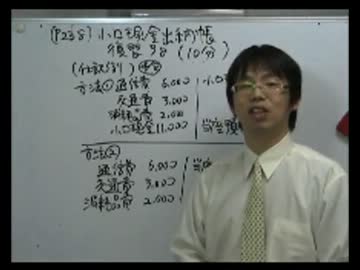 (P238) 小口現金出納帳
復習 (10分)
(仕訳例)
方法① 通信費 6,000 小口
交通費 3,000
消耗品費 2,000
小口現金 11,000 当座預
方法②
通信費 6,000 当座
交通費 3,000
消耗品費 2,000